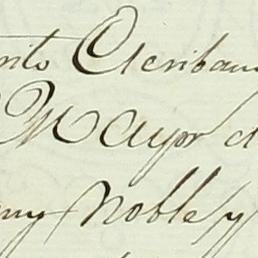 nto Escriban
Mayor d
muy Noble y